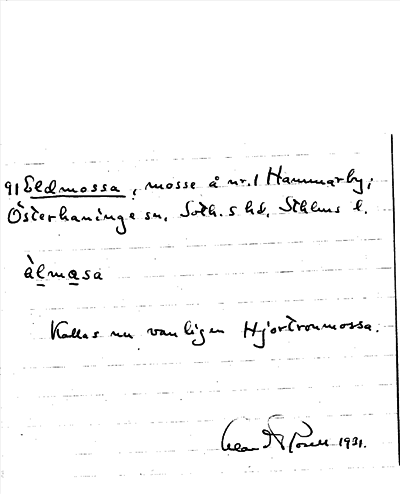 91 Eldmossa, mosse å nr. 1 Hammarby;
Österhaninge sn. Soth.s hd. Sthlms l.
àlmasa
Kallas nu vanligen Hjortronmossa.
1931.